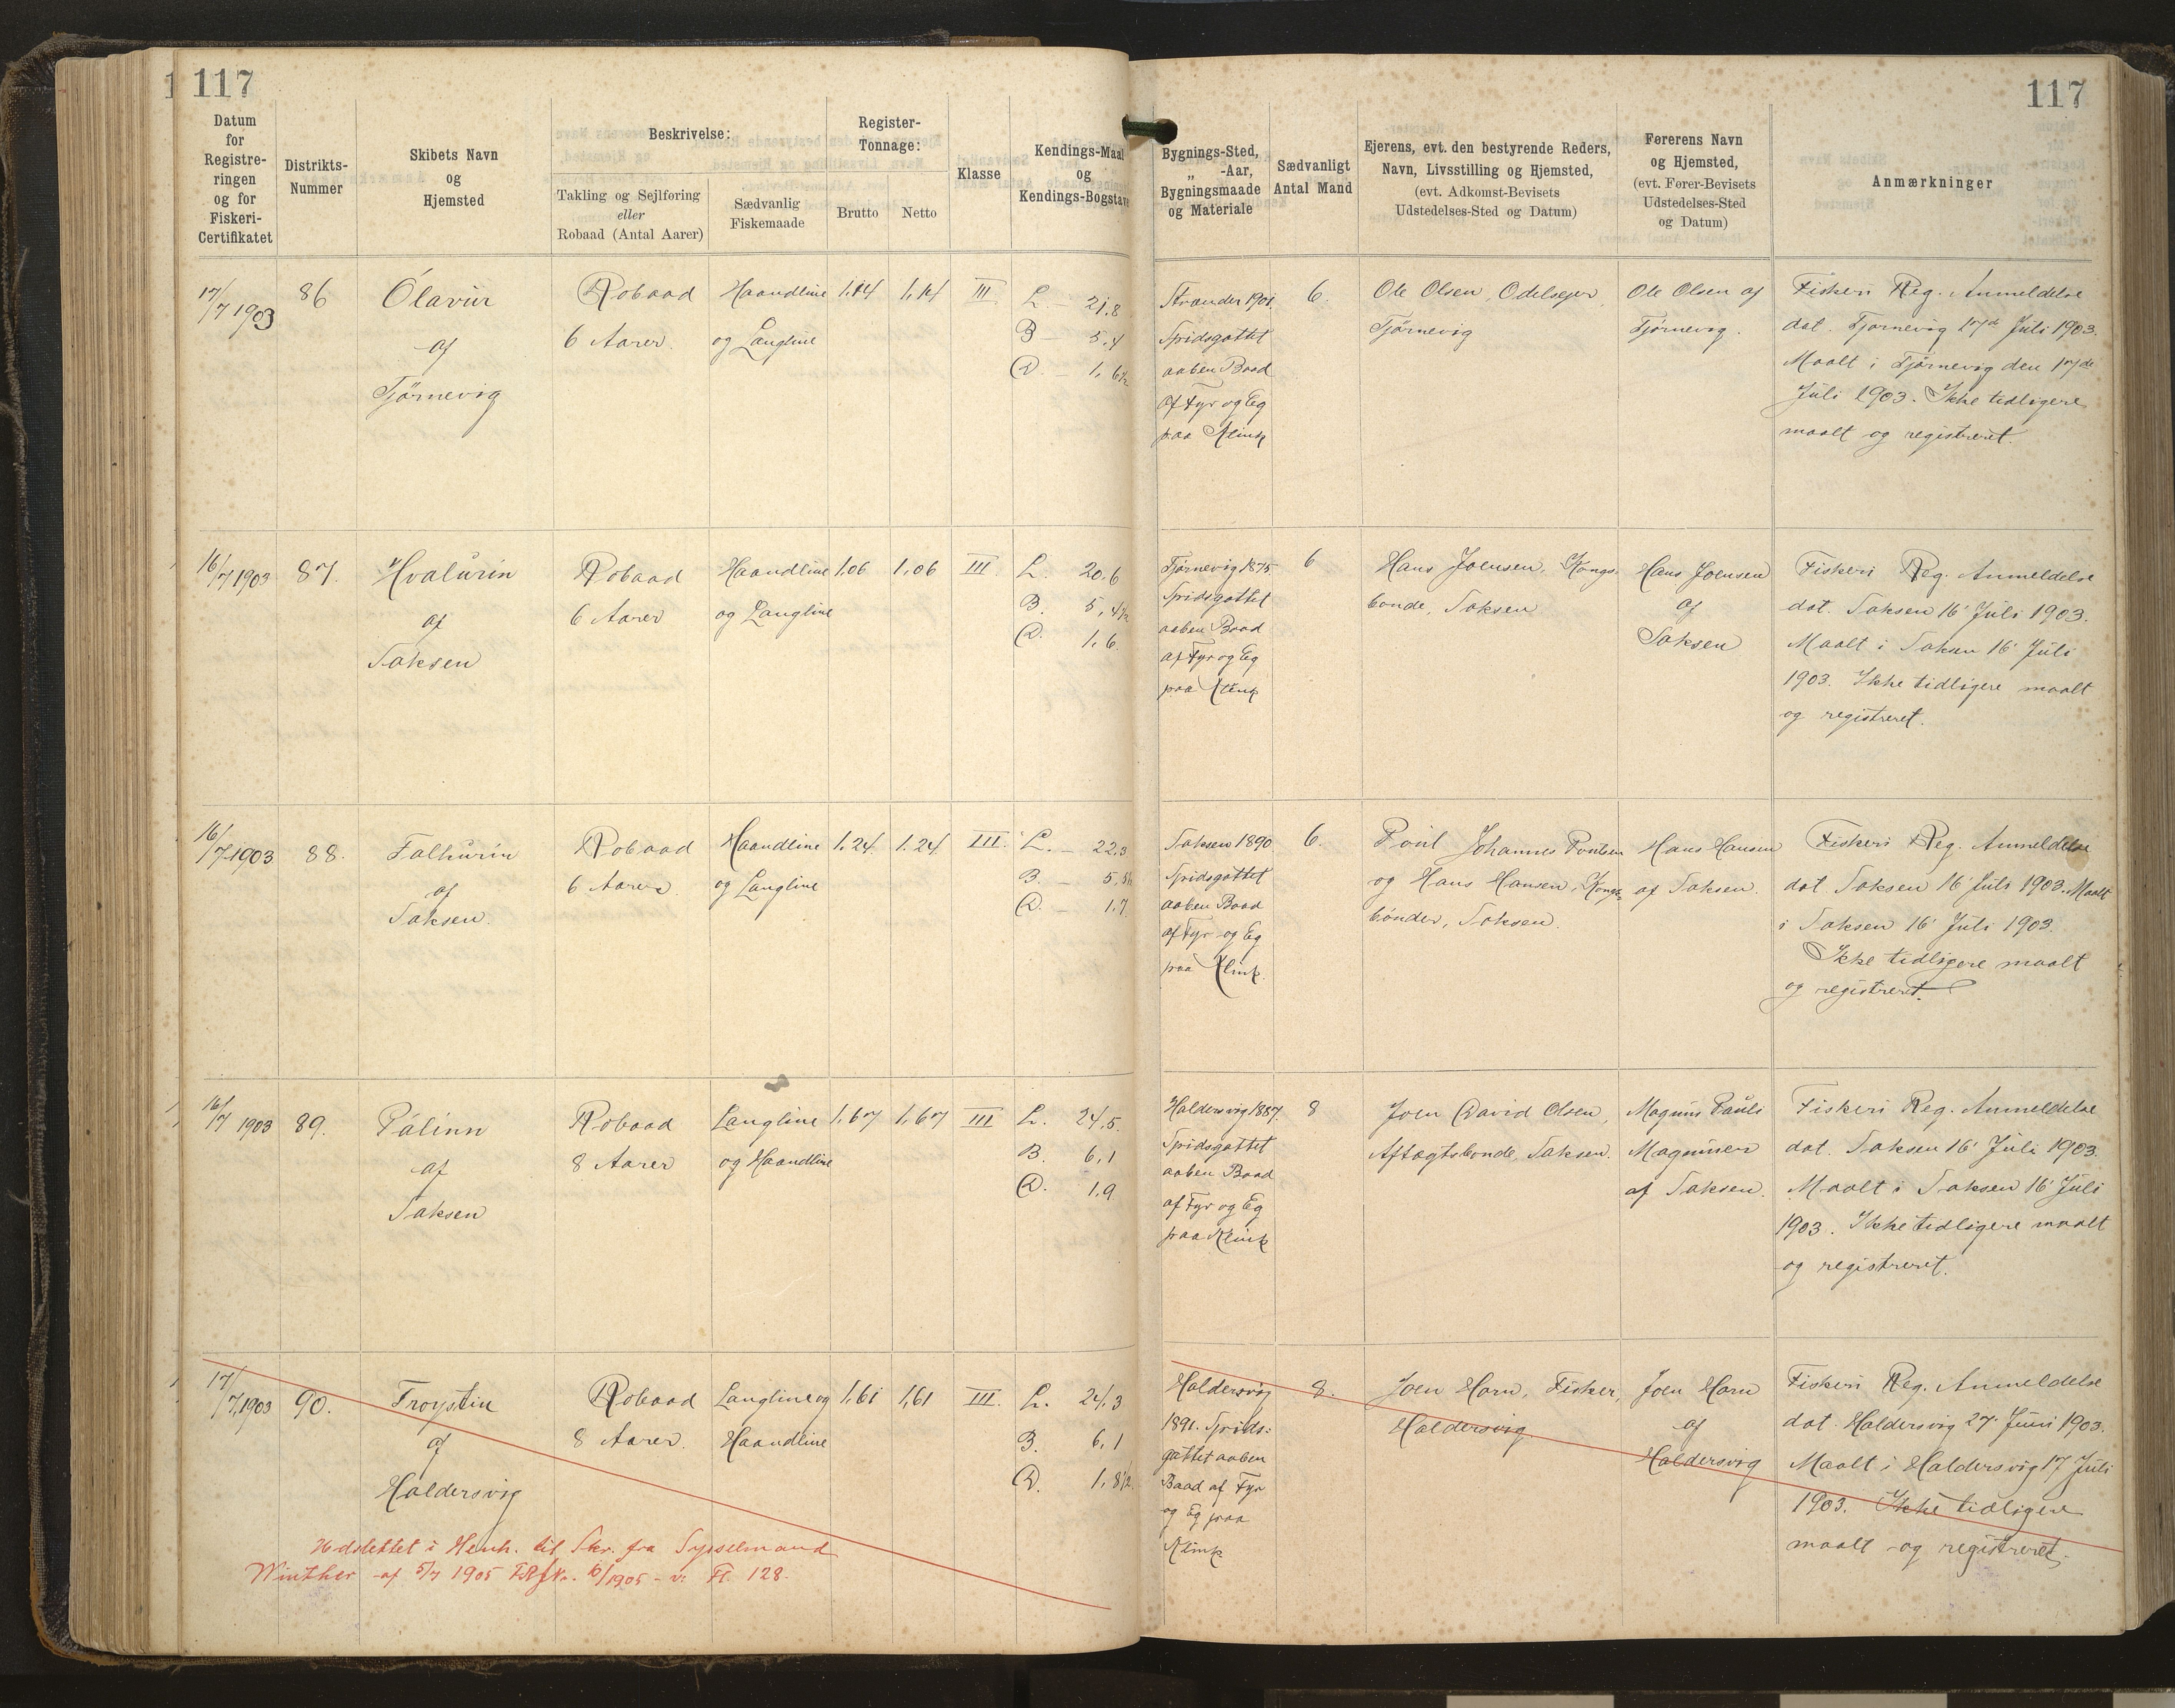 117
117
Datum
for
Registre-
ringen
og for
Fiskeri-
Certifikatet
Distrikts-
Nummer
Skibets Navn
og
Hjemsted
Beskrivelse:
Takling og Sejlføring
eller
Robaad (Antal Aarer)
Sædvanlig
Fiskemaade
Register-
Tonnage:
Brutto
Netto
Klasse
Kendings-Maal
og
Kendings-Bogstave
Bygnings-Sted,
„ -Aar,
Bygningsmaade
og Materiale
Sædvanligt
Antal Mand
Ejerens, evt. den bestyrende Reders,
Navn, Livsstilling og Hjemsted,
(evt. Adkomst-Bevisets
Udstedelses-Sted og Datum)
Førerens Navn
og Hjemsted,
(evt. Fører-Bevisets
Udstedelses-Sted
og Datum)
Anmærkninger
17/7 1903
86
Ólavur
af
Tjørnevig
Robaad
6 Aarer.
Haandline
og Langline
1,14
1,14
III
L. – 21,8
B – 5,4
D. – 1,6½
Strander 1901.
Spidsgattet
aaben Baad
af Fyr og Eg
paa Klink
6.
Ole Olsen, Odelsejer,
Tjørnevig
Ole Olsen af
Tjørnevig.
Fiskeri Reg. Anmeldelse
dat. Tjørnevig 17de Juli 1903.
Maalt i Tjørnevig den 17de
Juli 1903. Ikke tidligere
maalt og registreret.
16/7 1903
87.
Hvalurin
af
Saksen
Robaad
6 Aarer
Haandline
og Langline
1,06
1,06
III.
L. 20.6
B. 5,4½
D. 1,6.
Tjørnevig 1875
Spidsgattet
aaben Baad
af Fyr og Eg
paa Klink
6
Hans Joensen, Kongs-
bonde, Saksen
Hans Joensen
af
Saksen
Fiskeri Reg. Anmeldelse
dat. Saksen 16' Juli 1903.
Maalt i Saksen 16' Juli
1903. Ikke tidligere maalt
og registreret.
16/7 1903
88.
Falkurin
af
Saksen.
Robaad
6 Aarer.
Haandline
og Langline
1.24
1.24
III.
L. – 22,3
B. – 5,5½
D. – 1.7
Saksen 1890
Spidsgattet
aaben Baad
af Fyr og Eg
paa Klink.
6.
Poul Johannes Poulsen
og Hans Hansen, Kongs-
bønder, Saksen.
Hans Hansen
af Saksen.
Fiskeri Reg. Anmeldelse
dat. Saksen 16' Juli 1903. Maalt
i Saksen 16' Juli 1903.
Ikke tidligere maalt
og registreret.
16/7 1903
89.
Pálinn
af
Saksen
Robaad
8 Aarer
Langline
og Haandline
1,67
1,67
III
L. 24,5.
B. 6,1
D. 1,9
Haldersvig 1887.
Spidsgattet
aaben Baad
af Fyr og Eg
paa Klink
8
Joen David Olsen,
Aftægtsbonde, Saksen.
Magnus Pauli
Magnusen
af Saksen.
Fiskeri Reg. Anmeldelse
dat. Saksen 16' Juli 1903.
Maalt i Saksen 16' Juli
1903. Ikke tidligere maalt
og registreret.
17/7 1903
90.
Troystin
af
Haldersvig
Robaad
8 Aarer.
Langline og
Haandline
1,61
1,61
III.
L. 24,3
B. 6,1
D. 1,8½.
Haldersvig
1891. Spids-
gattet aaben
Baad af Fyr
og Eg paa
Klink.
8.
Joen Horn, Fisker,
Haldersvig
Joen Horn
af
Haldersvig
Fiskeri Reg. Anmeldelse
dat. Haldersvig 27. Juni 1903.
Maalt i Haldersvig 17 Juli
1903. Ikke tidligere
maalt og registreret.
Udslettet i Henh. til Skr. fra Sysselmand
Winther af 5/7 1905 /1905 – v: Fl. 128.